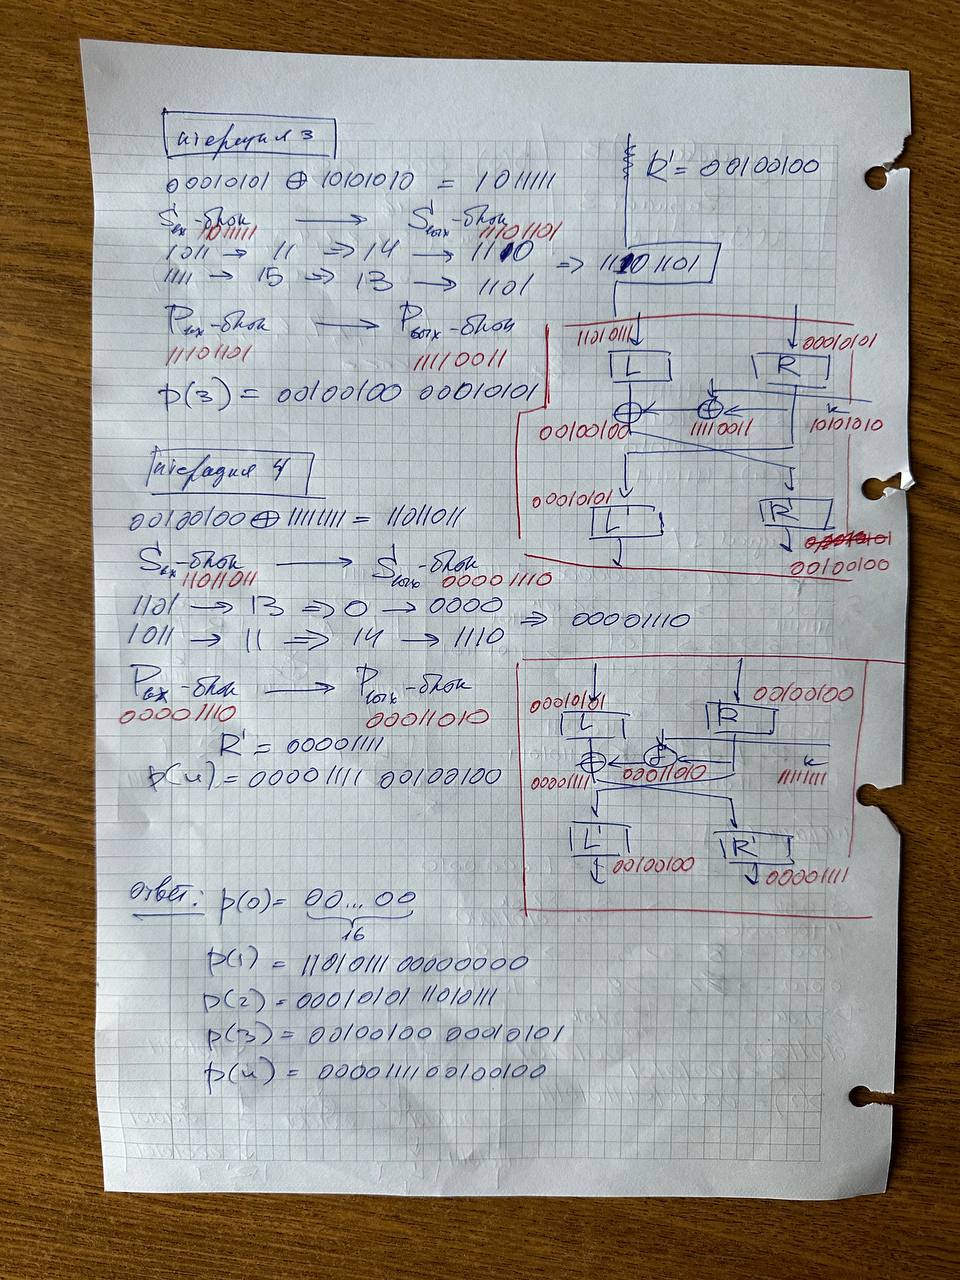 итерация 3
R' = 00100100
00010101 ⊕ 10101010 = 1011111
Sвх-блок → Sвых-блок
1011111 11101101
1011 → 11 ⇒ 14 → 1110
1111 → 15 ⇒ 13 → 1101
⇒ 11101101
Pвх-блок → Pвых-блок
11101101 11110011
p(3) = 00100100 00010101
11010111 00010101
L R
00100100 11110011 K
10101010
00010101
L' R'
00100100
итерация 4
00100100 ⊕ 11111111 = 11011011
Sвх-блок → Sвых-блок
11011011 00001110
1101 → 13 ⇒ 0 → 0000
1011 → 11 ⇒ 14 → 1110
⇒ 00001110
Pвх-блок → Pвых-блок
00001110 00011010
R' = 00001111
p(4) = 00001111 00100100
00010101 00100100
L R
00001111 00011010 K
1111111
L' R'
00100100 00001111
Ответ: p(0) = 00...00
16
p(1) = 11010111 00000000
p(2) = 00010101 11010111
p(3) = 00100100 00010101
p(4) = 00001111 00100100